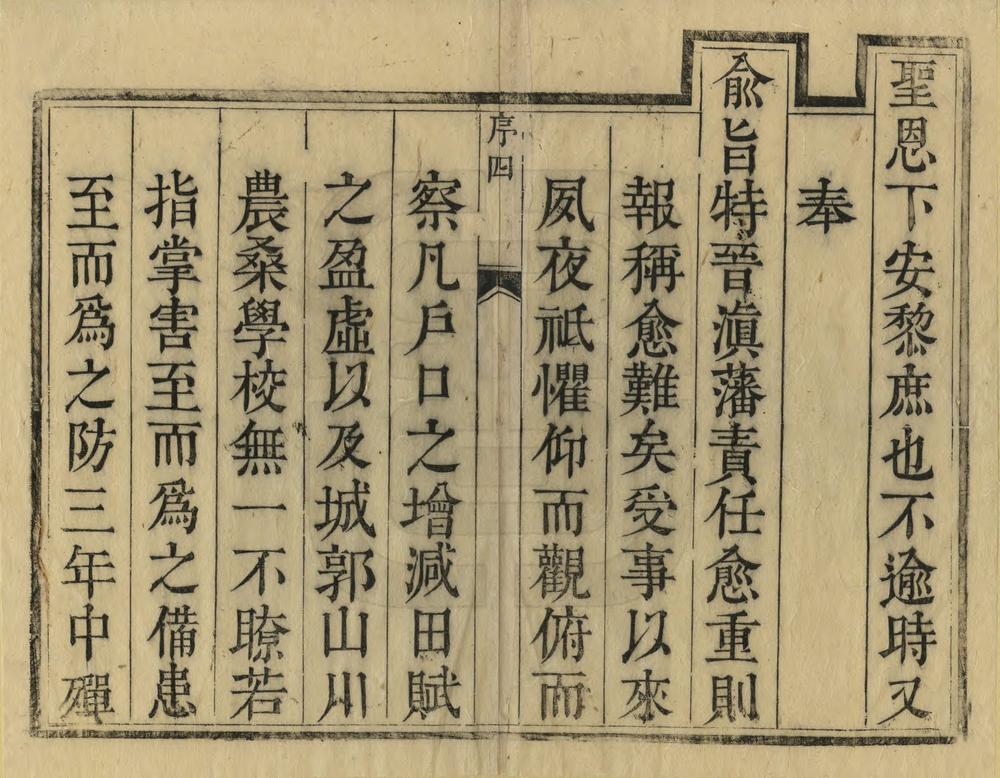 聖恩下安黎庶也不逾時又
奉
俞旨特晉滇藩責任愈重則
報稱愈難矣受事以來
夙夜祗懼仰而觀俯而
序四
察凡戶口之增減田賦
之盈虛以及城郭山川
農桑學校無一不瞭若
指掌害至而為之備患
至而為之防三年中殫